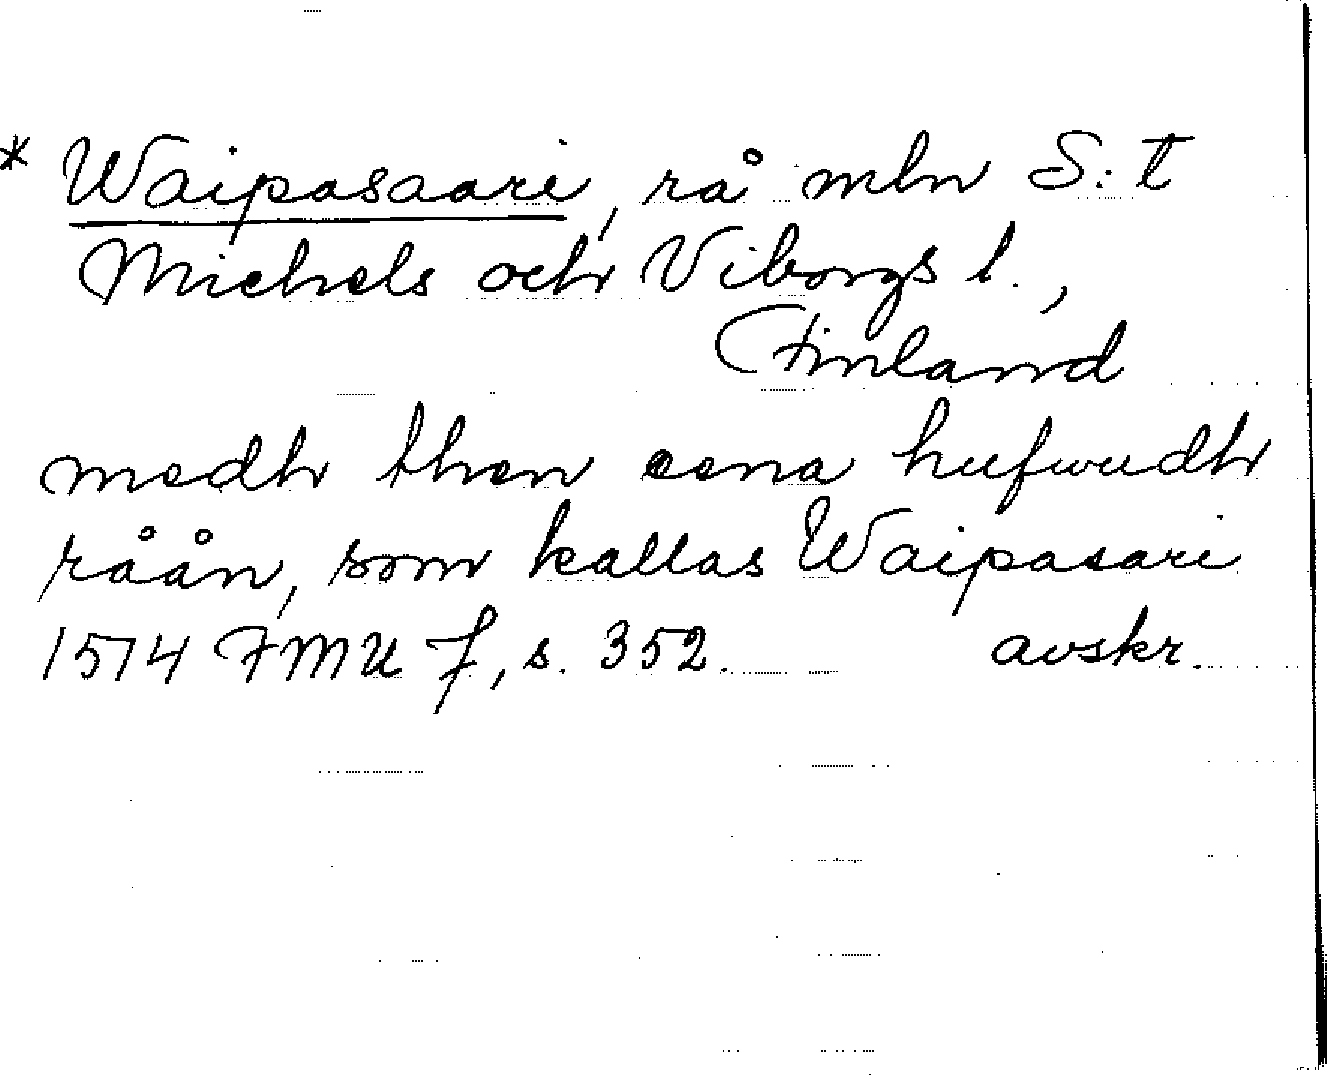 * Waipasaari, rå mln S:t
Michels och Viborgs l.,
Finland
medh then eena hufwudh
råån, som kallas Waipasari
1514 FMU 7, s. 352. avskr.